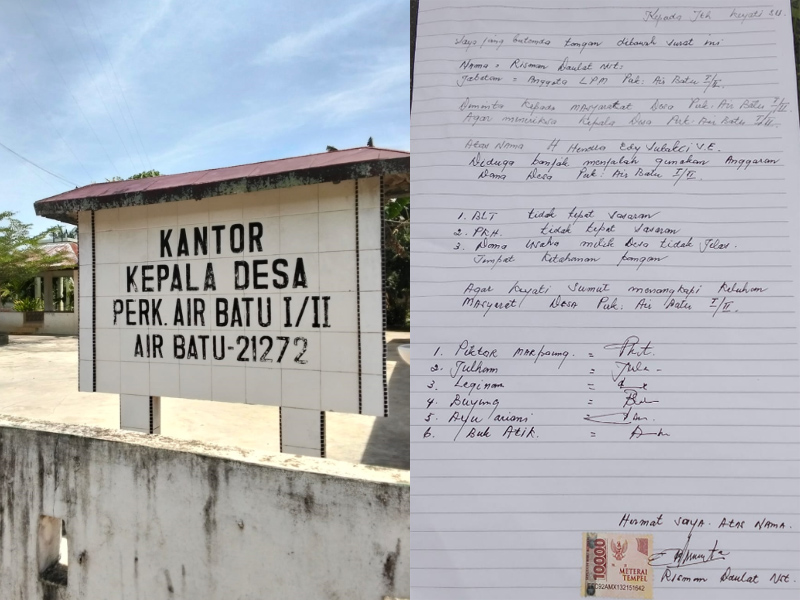 KANTOR
KEPALA DESA
PERK. AIR BATU I/II
AIR BATU-21272
Kepada Yth Kejati SU.
Saya yang bertanda tangan dibawah surat ini
Nama = Risman Daulat Nst.
Jabatan = Anggota LPM Puk. Air Batu I/II.
Deminta Kepada Masyarakat Desa Puk. Air Batu I/II
Agar memeriksa Kepala Desa Perk. Air Batu I/II.
Atas Nama H. Hendra Edy
Diduga banyak menyalah gunakan Anggaran
Dana Desa Puk. Air Batu I/II.
1. BLT tidak tepat sasaran
2. PKH. tidak tepat sasaran
3. Dana Usaha milik Desa tidak Jelas.
Tempat Ketahanan pangan
Agar Kejati Sumut menangkapi Keluhan
Masyarat Desa Puk. Air Batu I/II.
1. Piktor Marpaung. =
2. Julham =
3. Leginan =
4. Buyung =
5. Ayu ariani =
6. Buk Atik. =
Hormat Saya. Atas Nama.
10000
METERAI
TEMPEL
C92AMX132151642
Risman Daulat Nst.